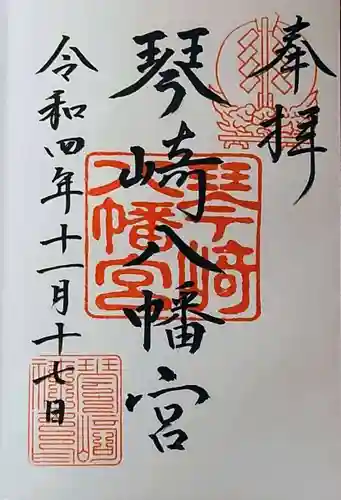 奉拝
琴崎八幡宮
令和四年十一月十七日
琴崎
八幡宮